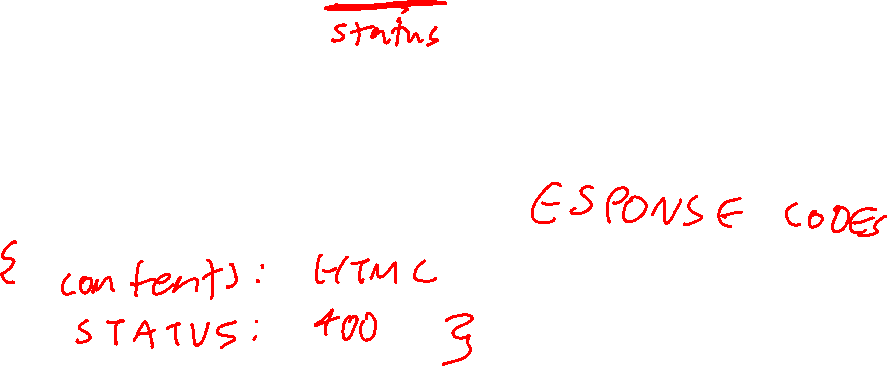 status
ESPONSE CODES
{ contents: HTML
STATUS: 400 }